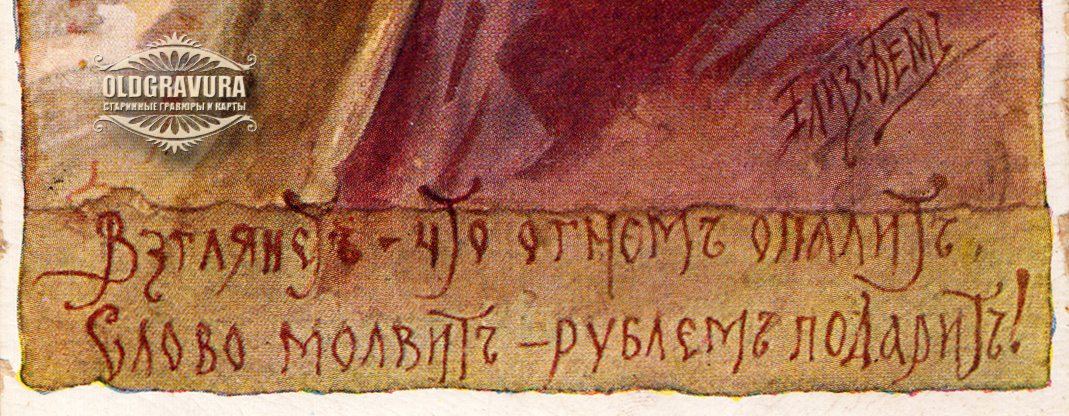 OLDGRAVURA
СТАРИННЫЕ ГРАВЮРЫ И КАРТЫ
Елиз. Бемъ
Взглянетъ - что огнемъ опалитъ,
Слово молвитъ - рублемъ подаритъ!